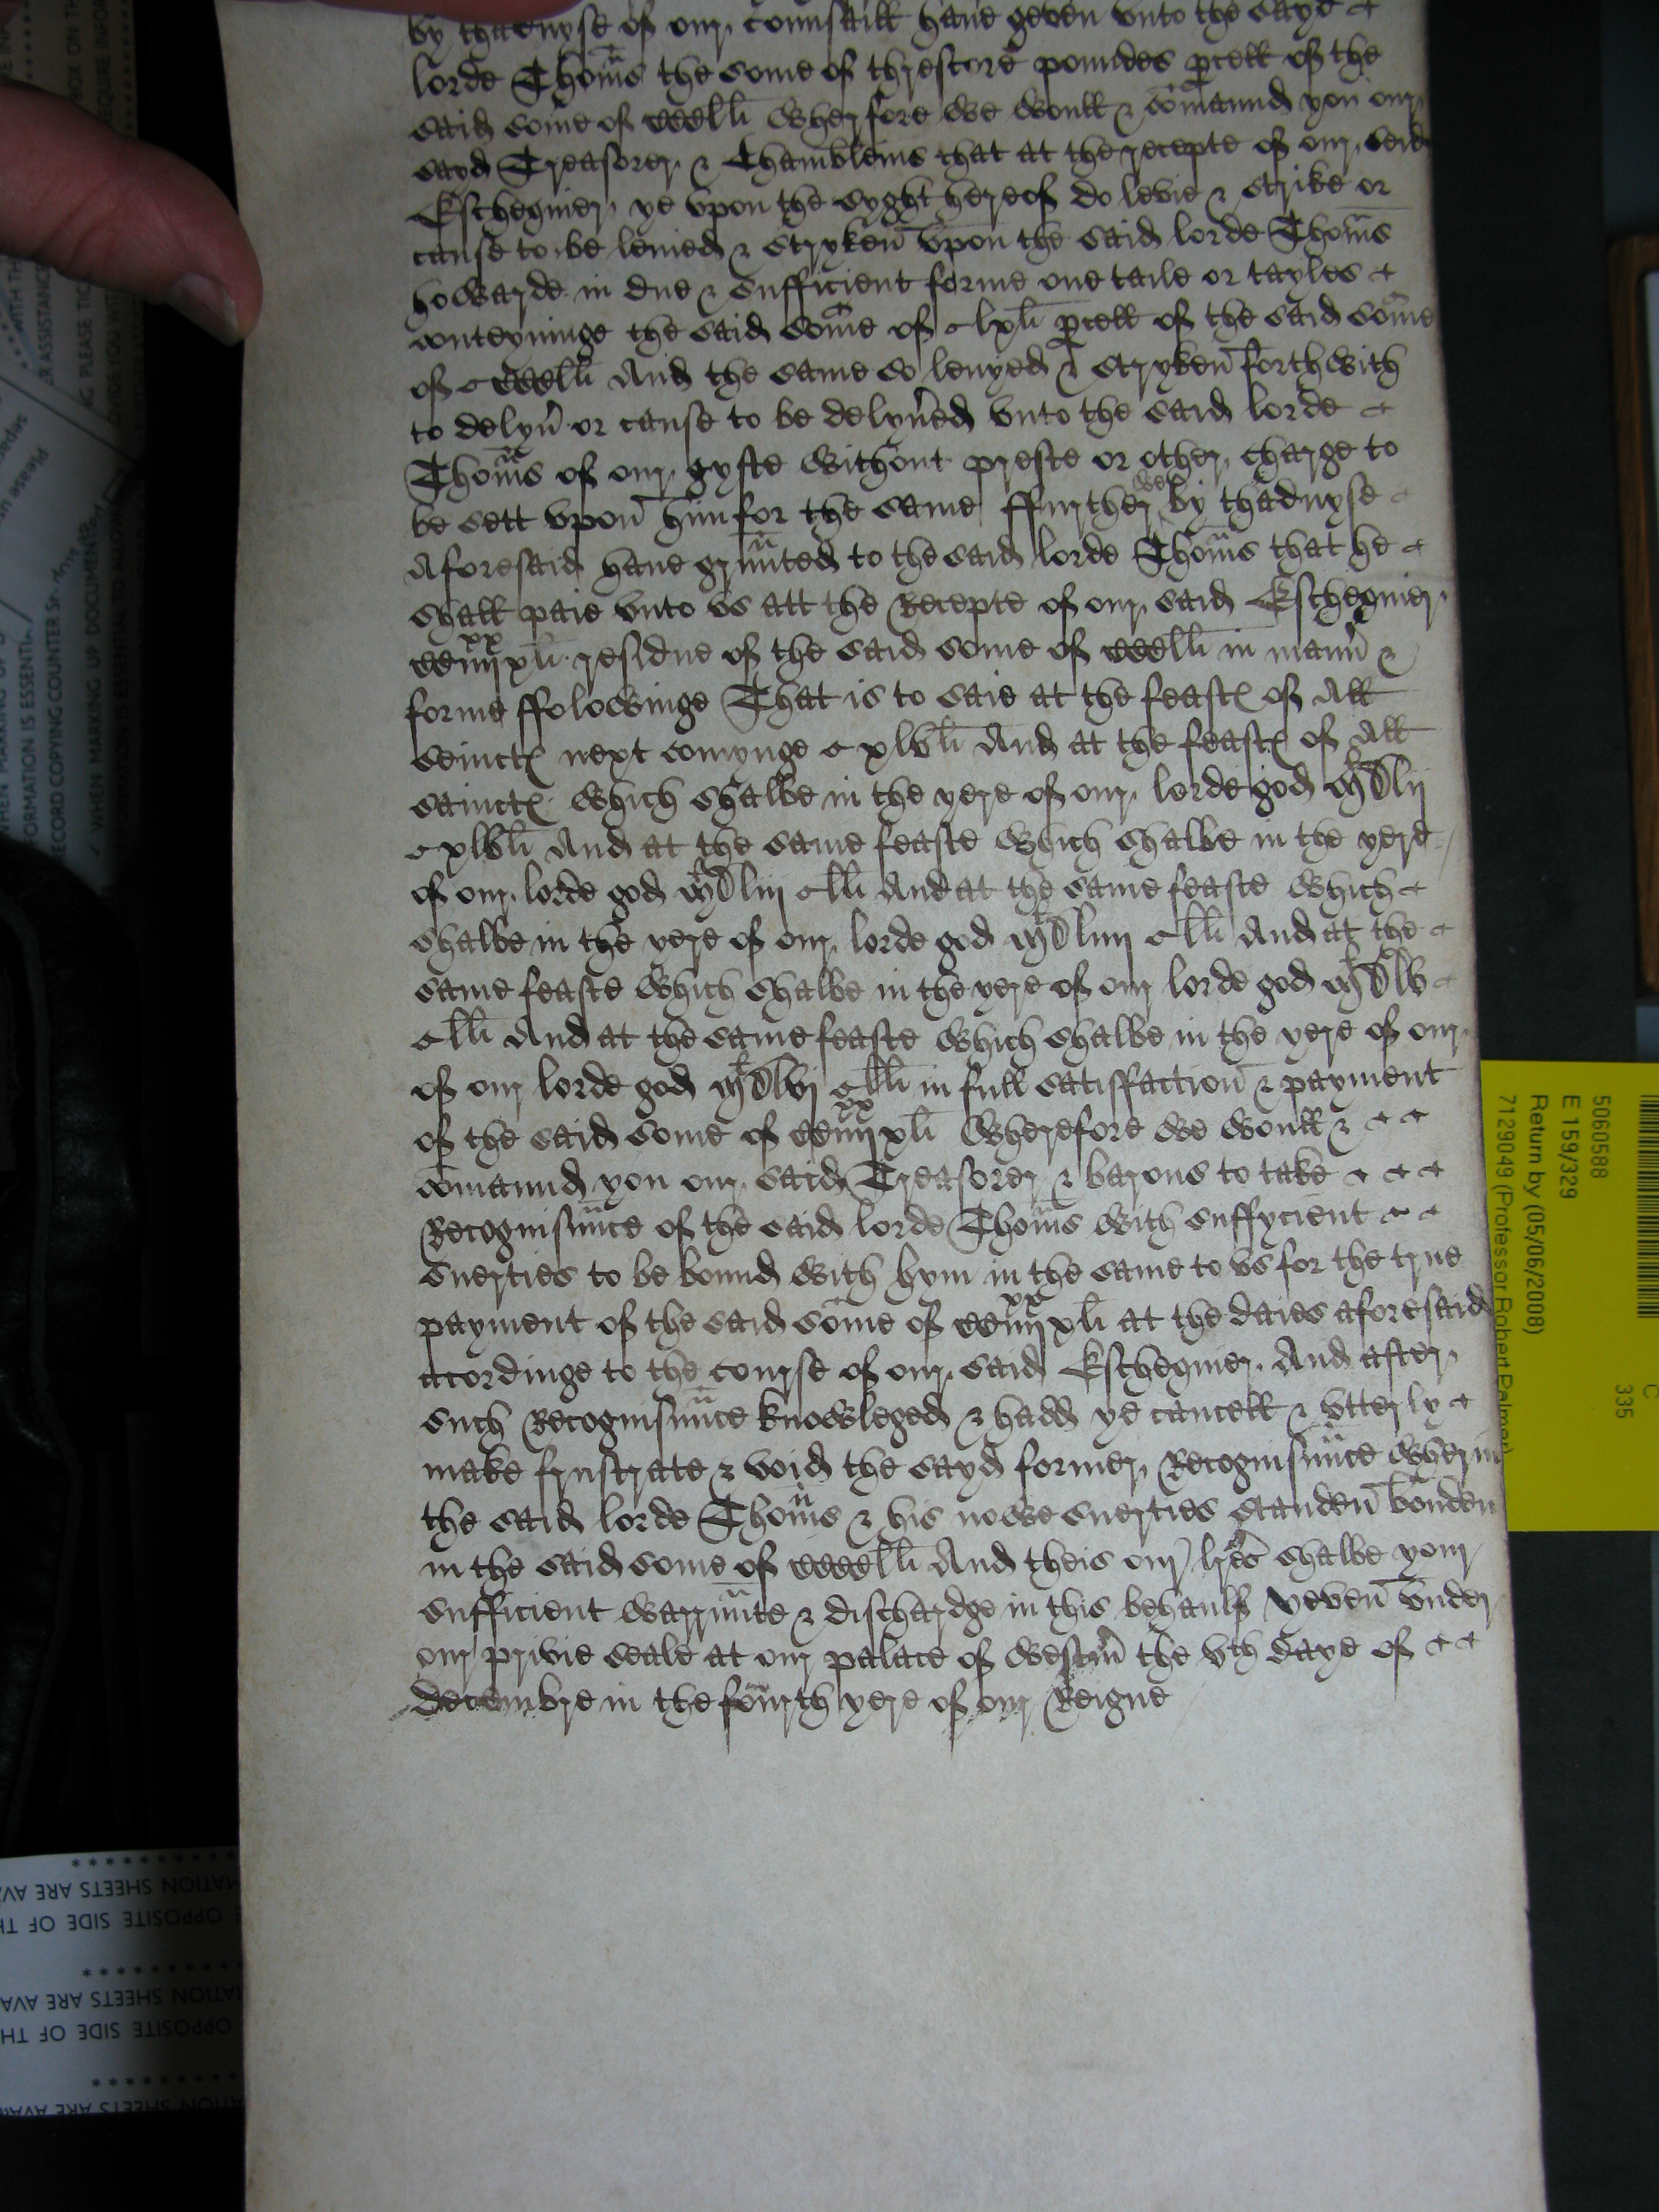 by thaduyse of our counsaill haue geven vnto the sayd
lorde Thom̃s the some of threscore poundes ꝑcell of the
said some of CCCClli Wherfore we woull & com̃aund you our
sayd Treasorer & Chamblein̄s that at the recepte of our seid
Eschequier ye vpon the syght hereof do levie & strike or
cause to be leuied & stryken̄ vpon the said lorde Thom̃s
howarde in due & sufficient forme one taile or tayles
conteyninge the said some of lxli ꝑcell of the said some
of CCCClli And the same so leuyed & stryken̄ forthwith
to delyu͛ or cause to be delyu͛ed vnto the said lorde
Thom̃s of our gyfte without preste or other charge to
be sett vpon̄ him for the same ffurther we by thaduyse
Aforesaid haue gr̃unted to the said lorde Thom̃s that he
shall paie vnto vs att the Recepte of our said Eschequier
xx
residue of the said some of in mann͛ &
forme ffolowinge That is to saie at the feaste of All
seincte next comynge Cxlvli And at the feaste of All
saincte which shalbe in the yere of our lorde god MlDlij
Cxlvli And at the same feaste which shalbe in the yere
of our lorde god MlDliij Clli And at the same feaste which
shalbe in the yere of our lorde god MlDliiij Clli And at the
same feaste which shalbe in the yere of our lorde god MlDlv
Clli And at the same feaste which shalbe in the yere of our
of our lorde god MlDlvj Clli in full satisffaction̄ & payment
of the said some of Wherefore we woull &
com̃aund you our said Treasorer & barons to take
Recognisũnce of the said lorde Thom̃s with suffycient
suerties to be bound with hym in the same to vs for the true
payment of the said some of at the daies aforesaid
acordinge to the course of our said Eschequier. And after
such Recognisũnce knowleged & hadd ye cancell & vtterly
make frustrate & void the sayd former Recognisũnce wherin
the said lorde Thom̃s & his nowe suerties standen̄ bonden
in the said some of And theis our lr̃es shalbe your
sufficient warrũnte & dischardge in this behaulf Yeven̄ vnder
our privie seale at our palace of Westm̃ the vth daye of
Decembre in the fourth yere of our Reigne
5060588
E 159/329
Return by (05/06/2008)
7129049 (Professor Robert Palmer)
C
335
RECORD COPYING COUNTER
WHEN MARKING UP DOCUMENTS